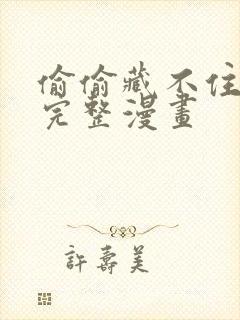 偷偷藏不住
完整漫畫
許壽美